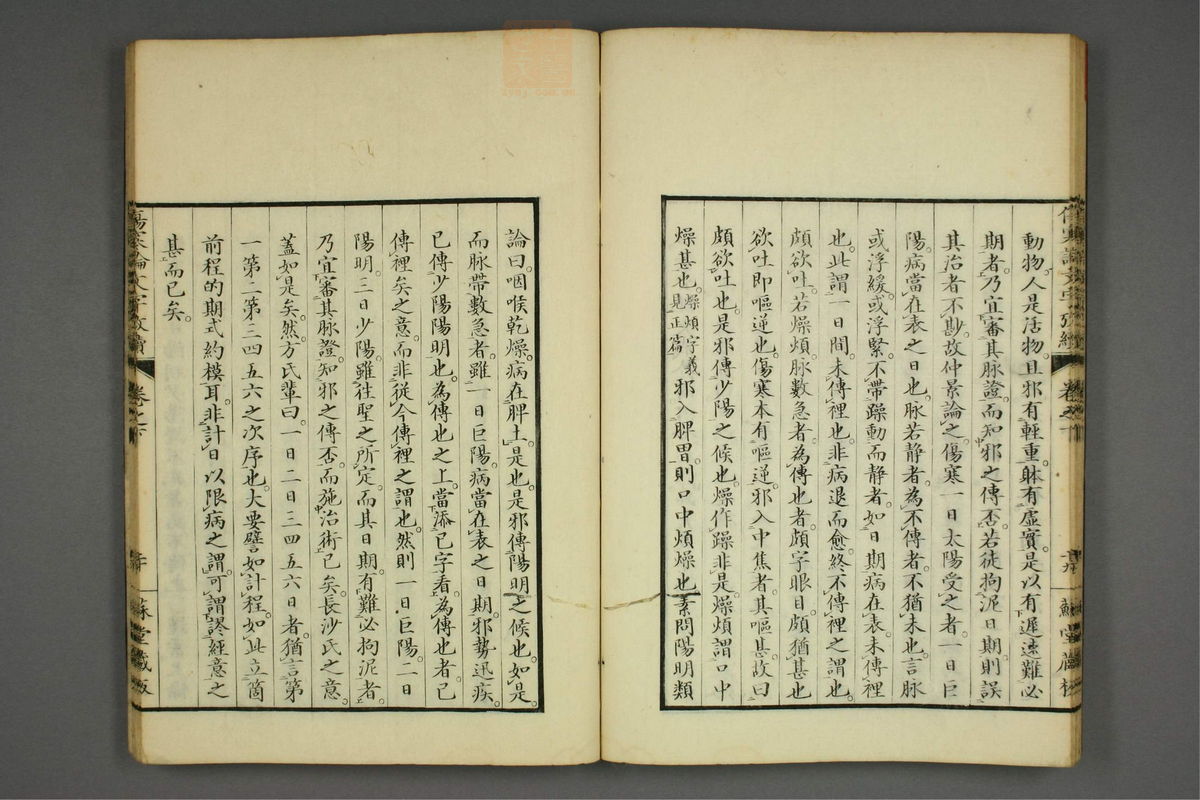 動物人是活物且邪有輕重躰有虛實是以有遲速難必
期者乃宜審其脉證而知邪之傳否若徒拘泥日期則誤
其治者不尠故仲景論之傷寒一日太陽受之者一日巨
陽病當在表之日也脉若靜者為不傳者不猶未也言脉
或浮緩或浮緊不帶躁動而靜者如日期病在表未傳裡
也此謂一日間未傳裡也非病退而愈終不傳裡之謂也
頗欲吐若燥煩脉數急者為傳也者頗字眼目頗猶甚也
欲吐即嘔逆也傷寒本有嘔逆邪入中焦者其嘔甚故曰
頗欲吐也是邪傳少陽之候也燥作躁非是燥煩謂口中
燥甚也燥煩字義見正篇邪入脾胃則口中煩燥也素問陽明類
論曰咽喉乾燥病在脾土是也是邪傳陽明之候也如是
而脉帶數急者雖一日巨陽病當在表之日期邪勢迅疾
已傳少陽陽明也為傳也之上當添已字看為傳也者已
傳裡矣之意而非從今傳裡之謂也然則一日巨陽二日
陽明三日少陽雖徃聖之所定而其日期有難必拘泥者
乃宜審其脉證知邪之傳否而施治術已矣長沙氏之意
蓋如是矣然方氏輩曰一日二日三四五六日者猶言第
一第二第三四五六之次序也大要譬如計程如此立箇
前程的期式約模耳非計日以限病之謂可謂謬經意之
甚而已矣
傷寒論文字攷續
卷之下
蘇堂藏板